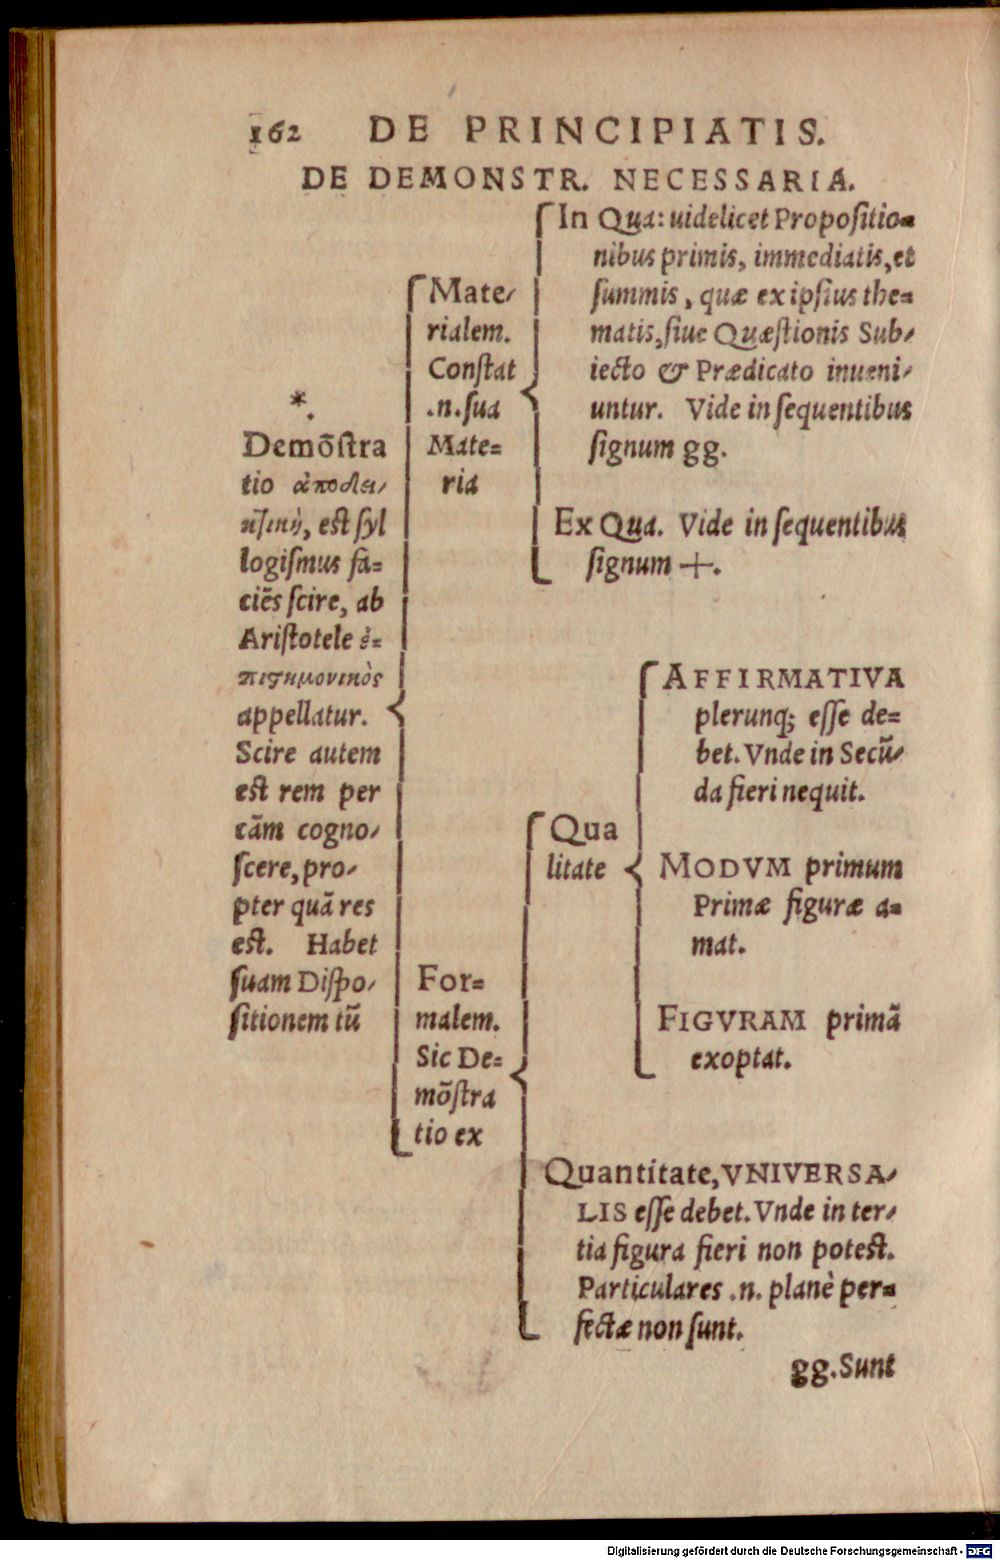 162 DE PRINCIPIATIS.
DE DEMONSTR. NECESSARIA.
*.
Demõstra
tio ἀποδει/
κτικὴ, est syl
logismus fa=
ciẽs scire, ab
Aristotele ἐ=
πιστημονικὸς
appellatur.
Scire autem
est rem per
cãm cogno/
scere, pro/
pter quã res
est. Habet
suam Dispo/
sitionem tũ
Mate/
rialem.
Constat
.n. sua
Mate=
ria
In Qua: uidelicet Propositio=
nibus primis, immediatis, et
summis, quæ ex ipsius the=
matis, siue Quæstionis Sub/
iecto & Prædicato inueni/
untur. Vide in sequentibus
signum gg.
Ex Qua. Vide in sequentibus
signum +.
For=
malem.
Sic De=
mõstra
tio ex
Qua
litate
AFFIRMATIVA
plerunq; esse de=
bet. Vnde in Secũ/
da fieri nequit.
MODVM primum
Primæ figuræ a=
mat.
FIGVRAM primã
exoptat.
Quantitate, VNIVERSA/
LIS esse debet. Vnde in ter/
tia figura fieri non potest.
Particulares .n. planè per=
fectæ non sunt.
gg. Sunt
Digitalisierung gefördert durch die Deutsche Forschungsgemeinschaft - DFG